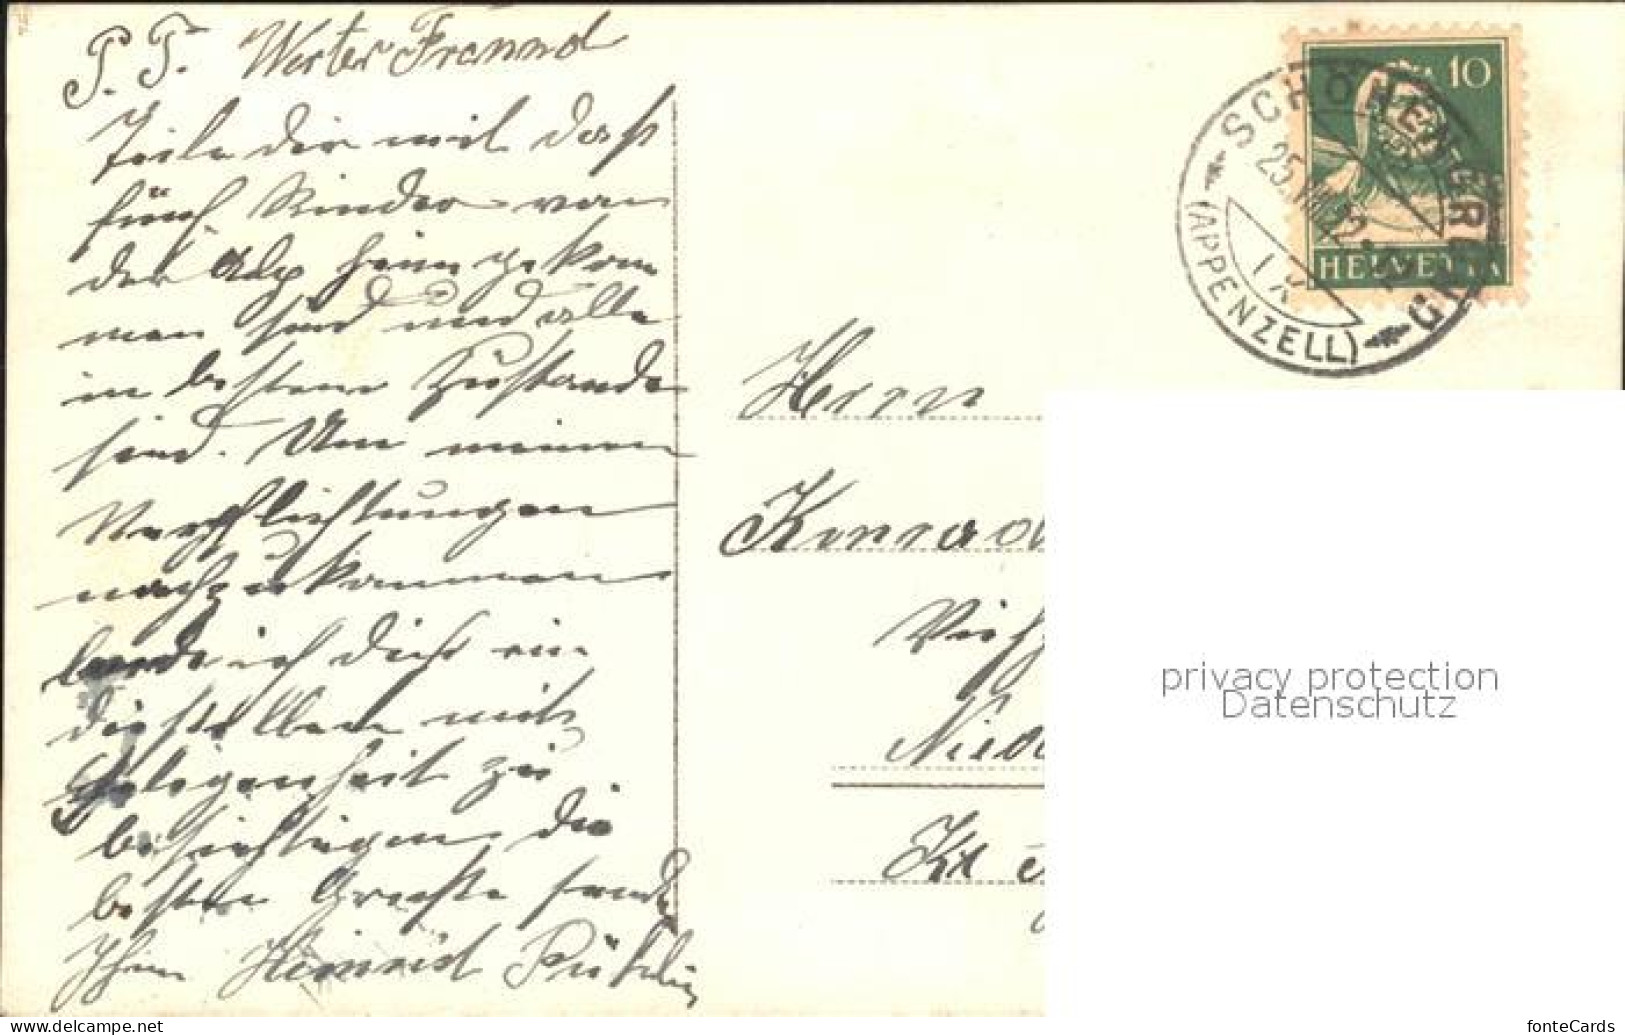 P. T. Werter Freund
Teile dir mit dass
fünf Rinder von
der Alp heim gekom
men sind und alle
in bestem Zustande
sind. Um meinen
Verpflichtungen
nachzukommen
lade ich dich ein
dieselben mit
Gelegenheit zu
besichtigen die
besten Grüsse sendet
Ihnen Heinrich
10
HELVETIA
SCHÖNENGRUND
25. VIII. 22.
(APPENZELL)
Herrn
Konrad
Vieh
Niede
Kt
privacy protection
Datenschutz
www.delcampe.net
fonteCards